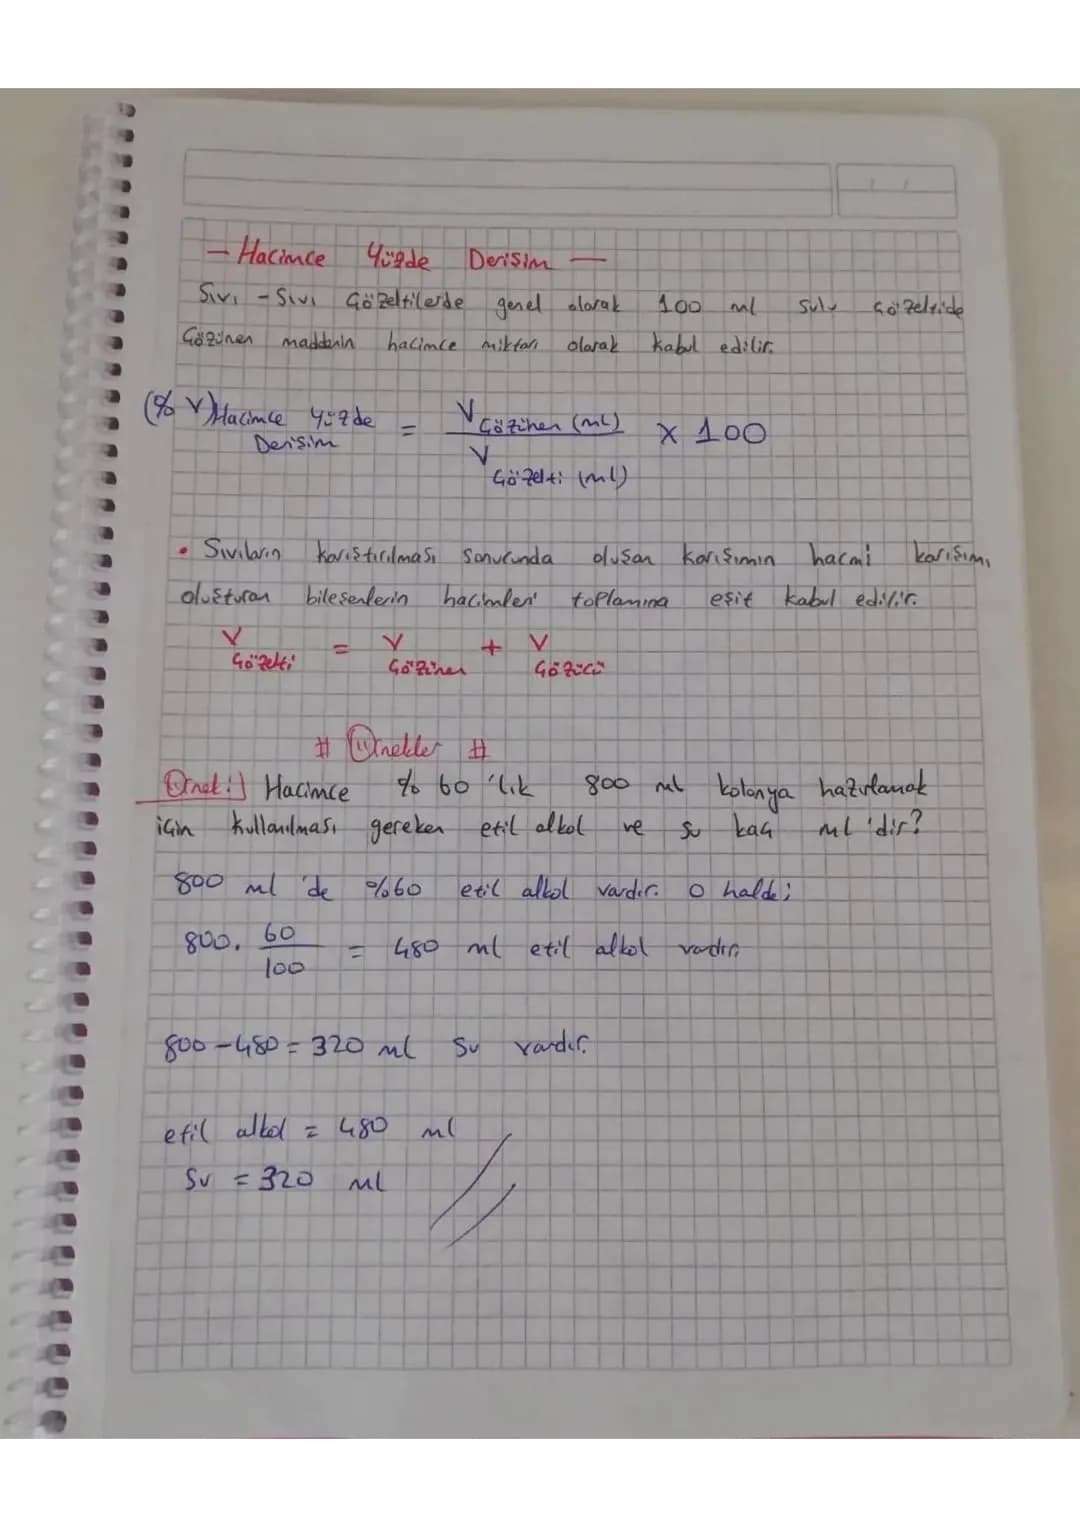 - Hacimce Yüzde Derişim -
Sıvı - Sıvı Çözeltilerde genel olarak 100 ml sulu çözeltide
Çözünen maddenin hacimce miktarı olarak kabul edilir.
(% V) Hacimce Yüzde Derişim = V Çözünen (mL) / V Çözelti (ml) x 100
• Sıvıların karıştırılması sonucunda oluşan karışımın hacmi karışımı
oluşturan bileşenlerin hacimleri toplamına eşit kabul edilir.
V Çözelti = V Çözünen + V Çözücü
# Örnekler #
Örnek:] Hacimce % 60 'lık 800 ml kolonya hazırlamak
için kullanılması gereken etil alkol ve su kaç ml 'dir?
800 ml 'de %60 etil alkol vardır. O halde;
800. 60/100 = 480 ml etil alkol vardır.
800-480 = 320 ml su vardır.
etil alkol = 480 ml
Su = 320 ml